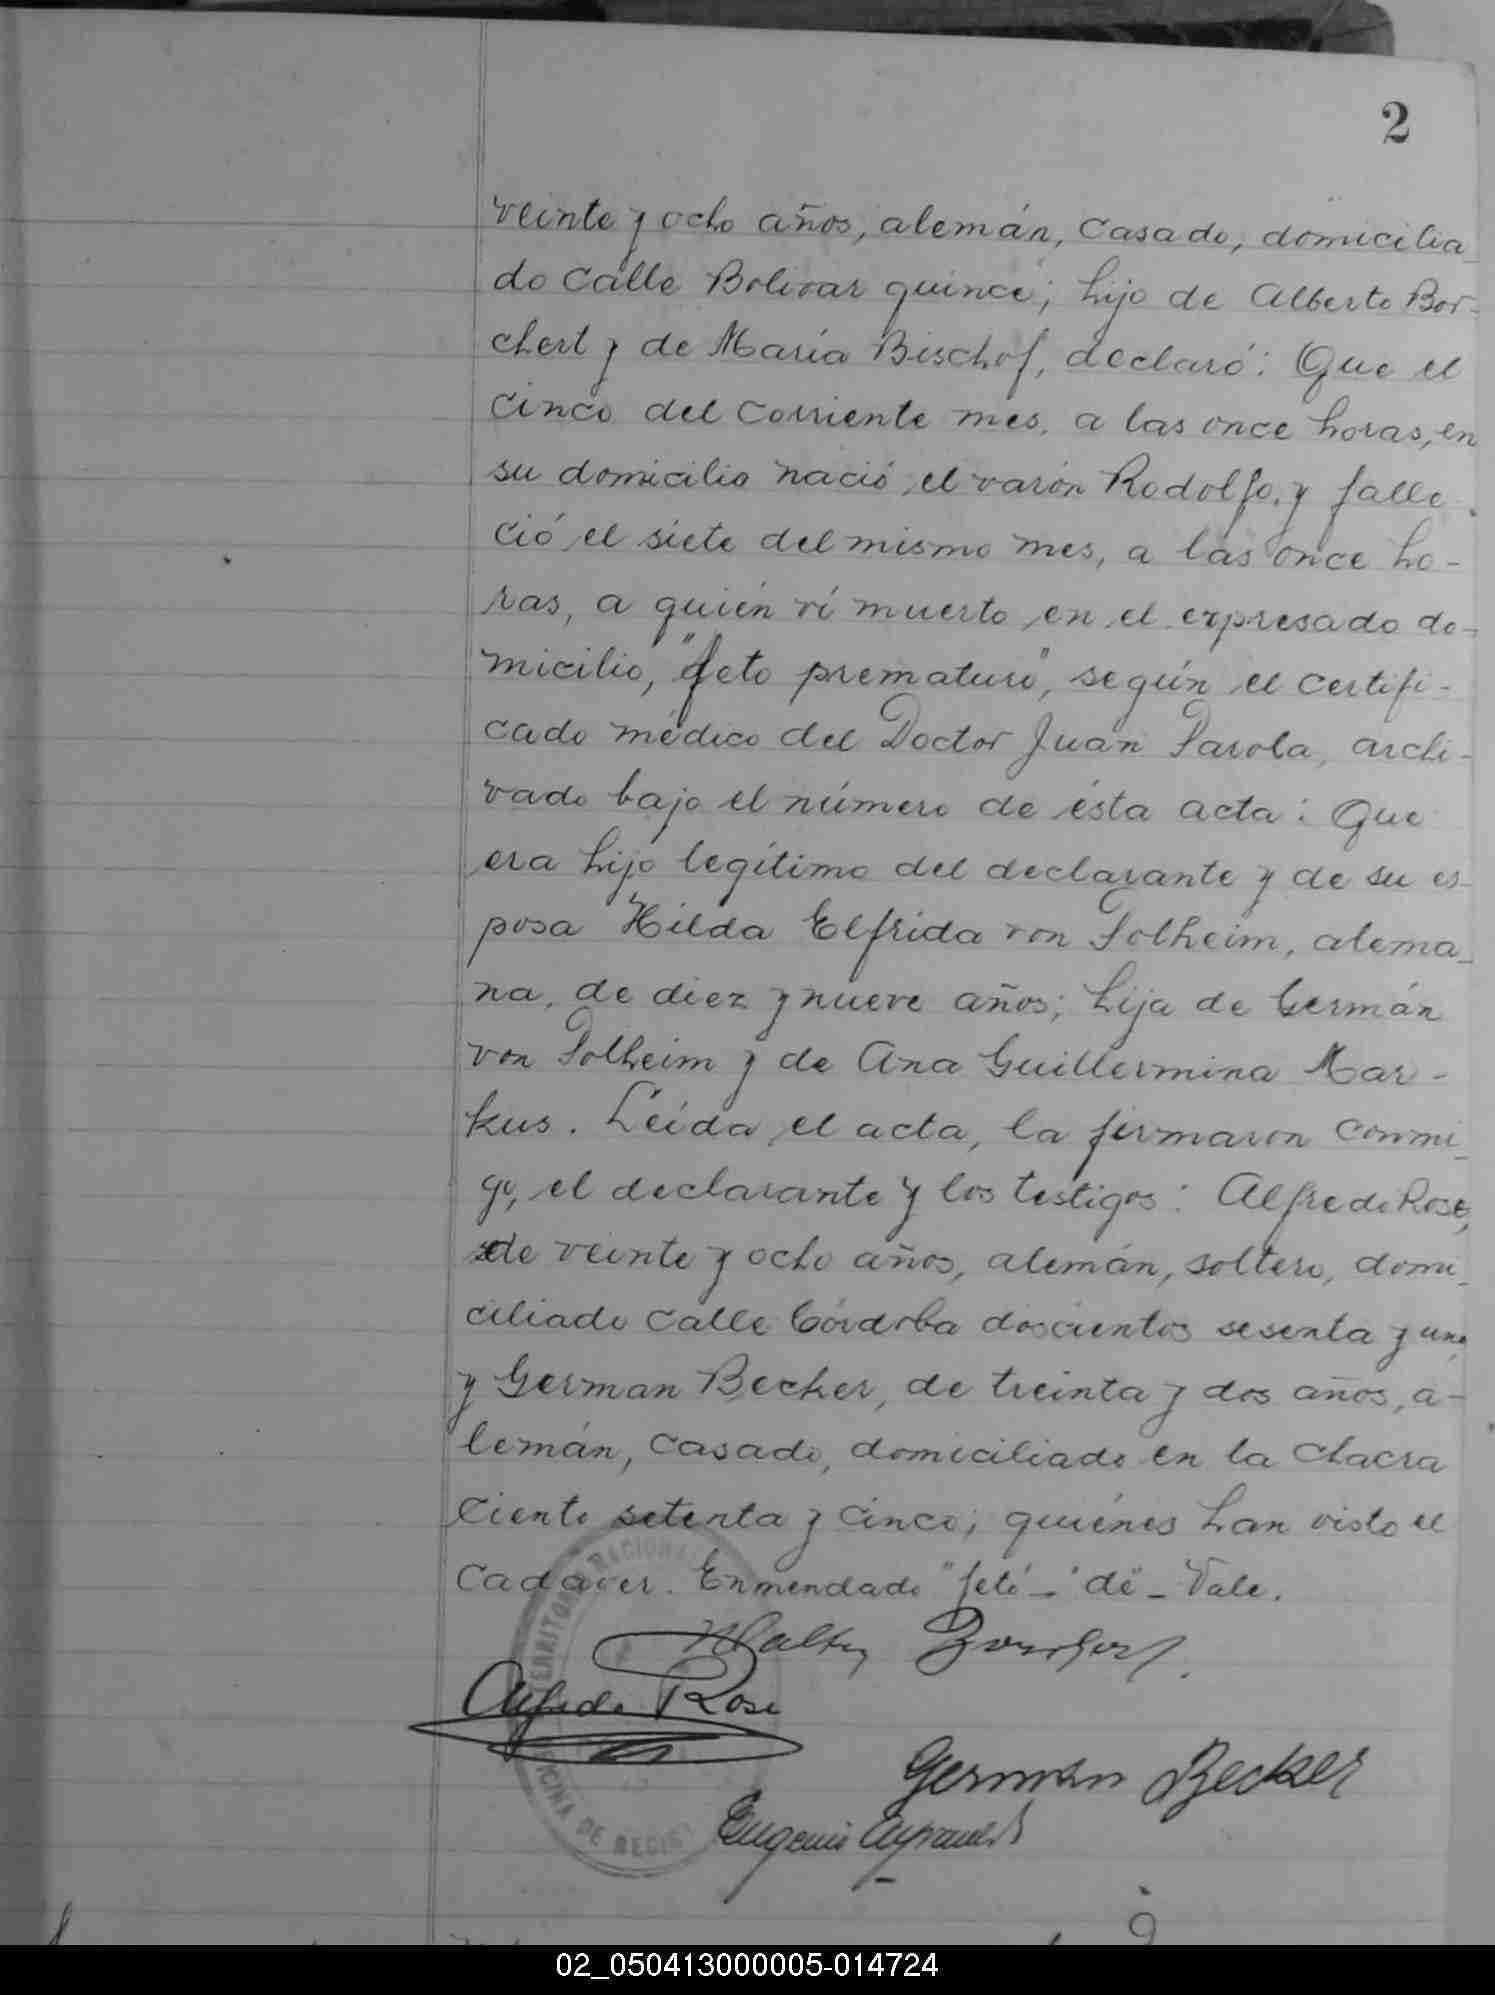 2
veinte y ocho años, alemán, casado, domicilia
do calle Bolivar quince; hijo de Alberto Bor-
chert y de María Bischof, declaró: Que el
cinco del corriente mes, a las once horas, en
su domicilio nació el varón Rodolfo, y falle
ció el siete del mismo mes, a las once ho-
ras, a quién ví muerto en el expresado do-
micilio, "feto prematuro", según el certifi-
cado médico del Doctor Juan Parola, archi-
vado bajo el número de ésta acta: Que
era hijo legítimo del declarante y de su es-
posa Hilda Elfrida von Polheim, alema_
na, de diez y nueve años; hija de Germán
von Polheim y de Ana Guillermina Mar-
kus. Leída el acta, la firmaron conmi_
go, el declarante y los testigos: Alfredo Rose,
de veinte y ocho años, alemán, soltero, domi_
ciliado calle Córdoba doscientos sesenta y uno
y German Becker, de treinta y dos años, a-
lemán, casado, domiciliado en la chacra
ciento setenta y cinco; quiénes han visto el
cadaver. Enmendado "feto" _ "de" _ Vale.
Walter Borchert.
Alfredo Rose
German Becker
Eugenio
TERRITORIO NACIONAL
OFICINA DE REGIS
02_050413000005-014724